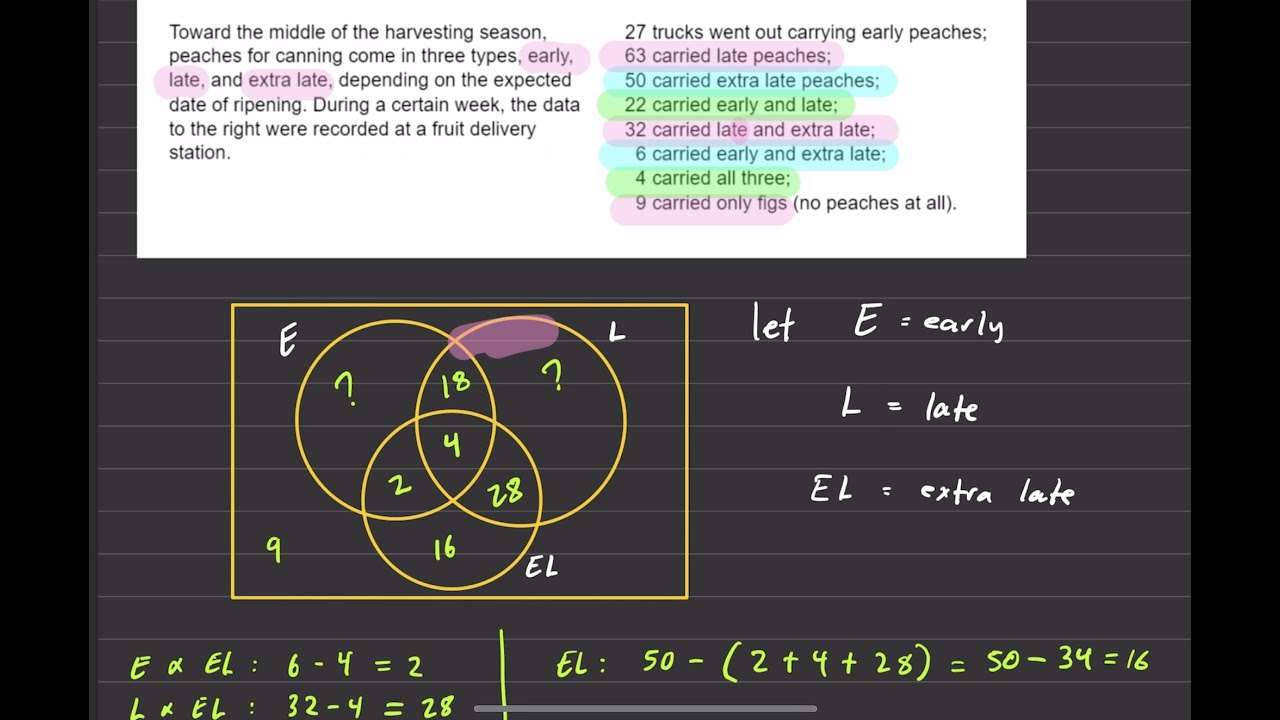 Toward the middle of the harvesting season,
peaches for canning come in three types, early,
late, and extra late, depending on the expected
date of ripening. During a certain week, the data
to the right were recorded at a fruit delivery
station.
27 trucks went out carrying early peaches;
63 carried late peaches;
50 carried extra late peaches;
22 carried early and late;
32 carried late and extra late;
6 carried early and extra late;
4 carried all three;
9 carried only figs (no peaches at all).
E
L
?
18
?
4
2
28
9
16
EL
let E = early
L = late
EL = extra late
E & EL : 6 - 4 = 2
L & EL : 32 - 4 = 28
EL : 50 - (2 + 4 + 28) = 50 - 34 = 16